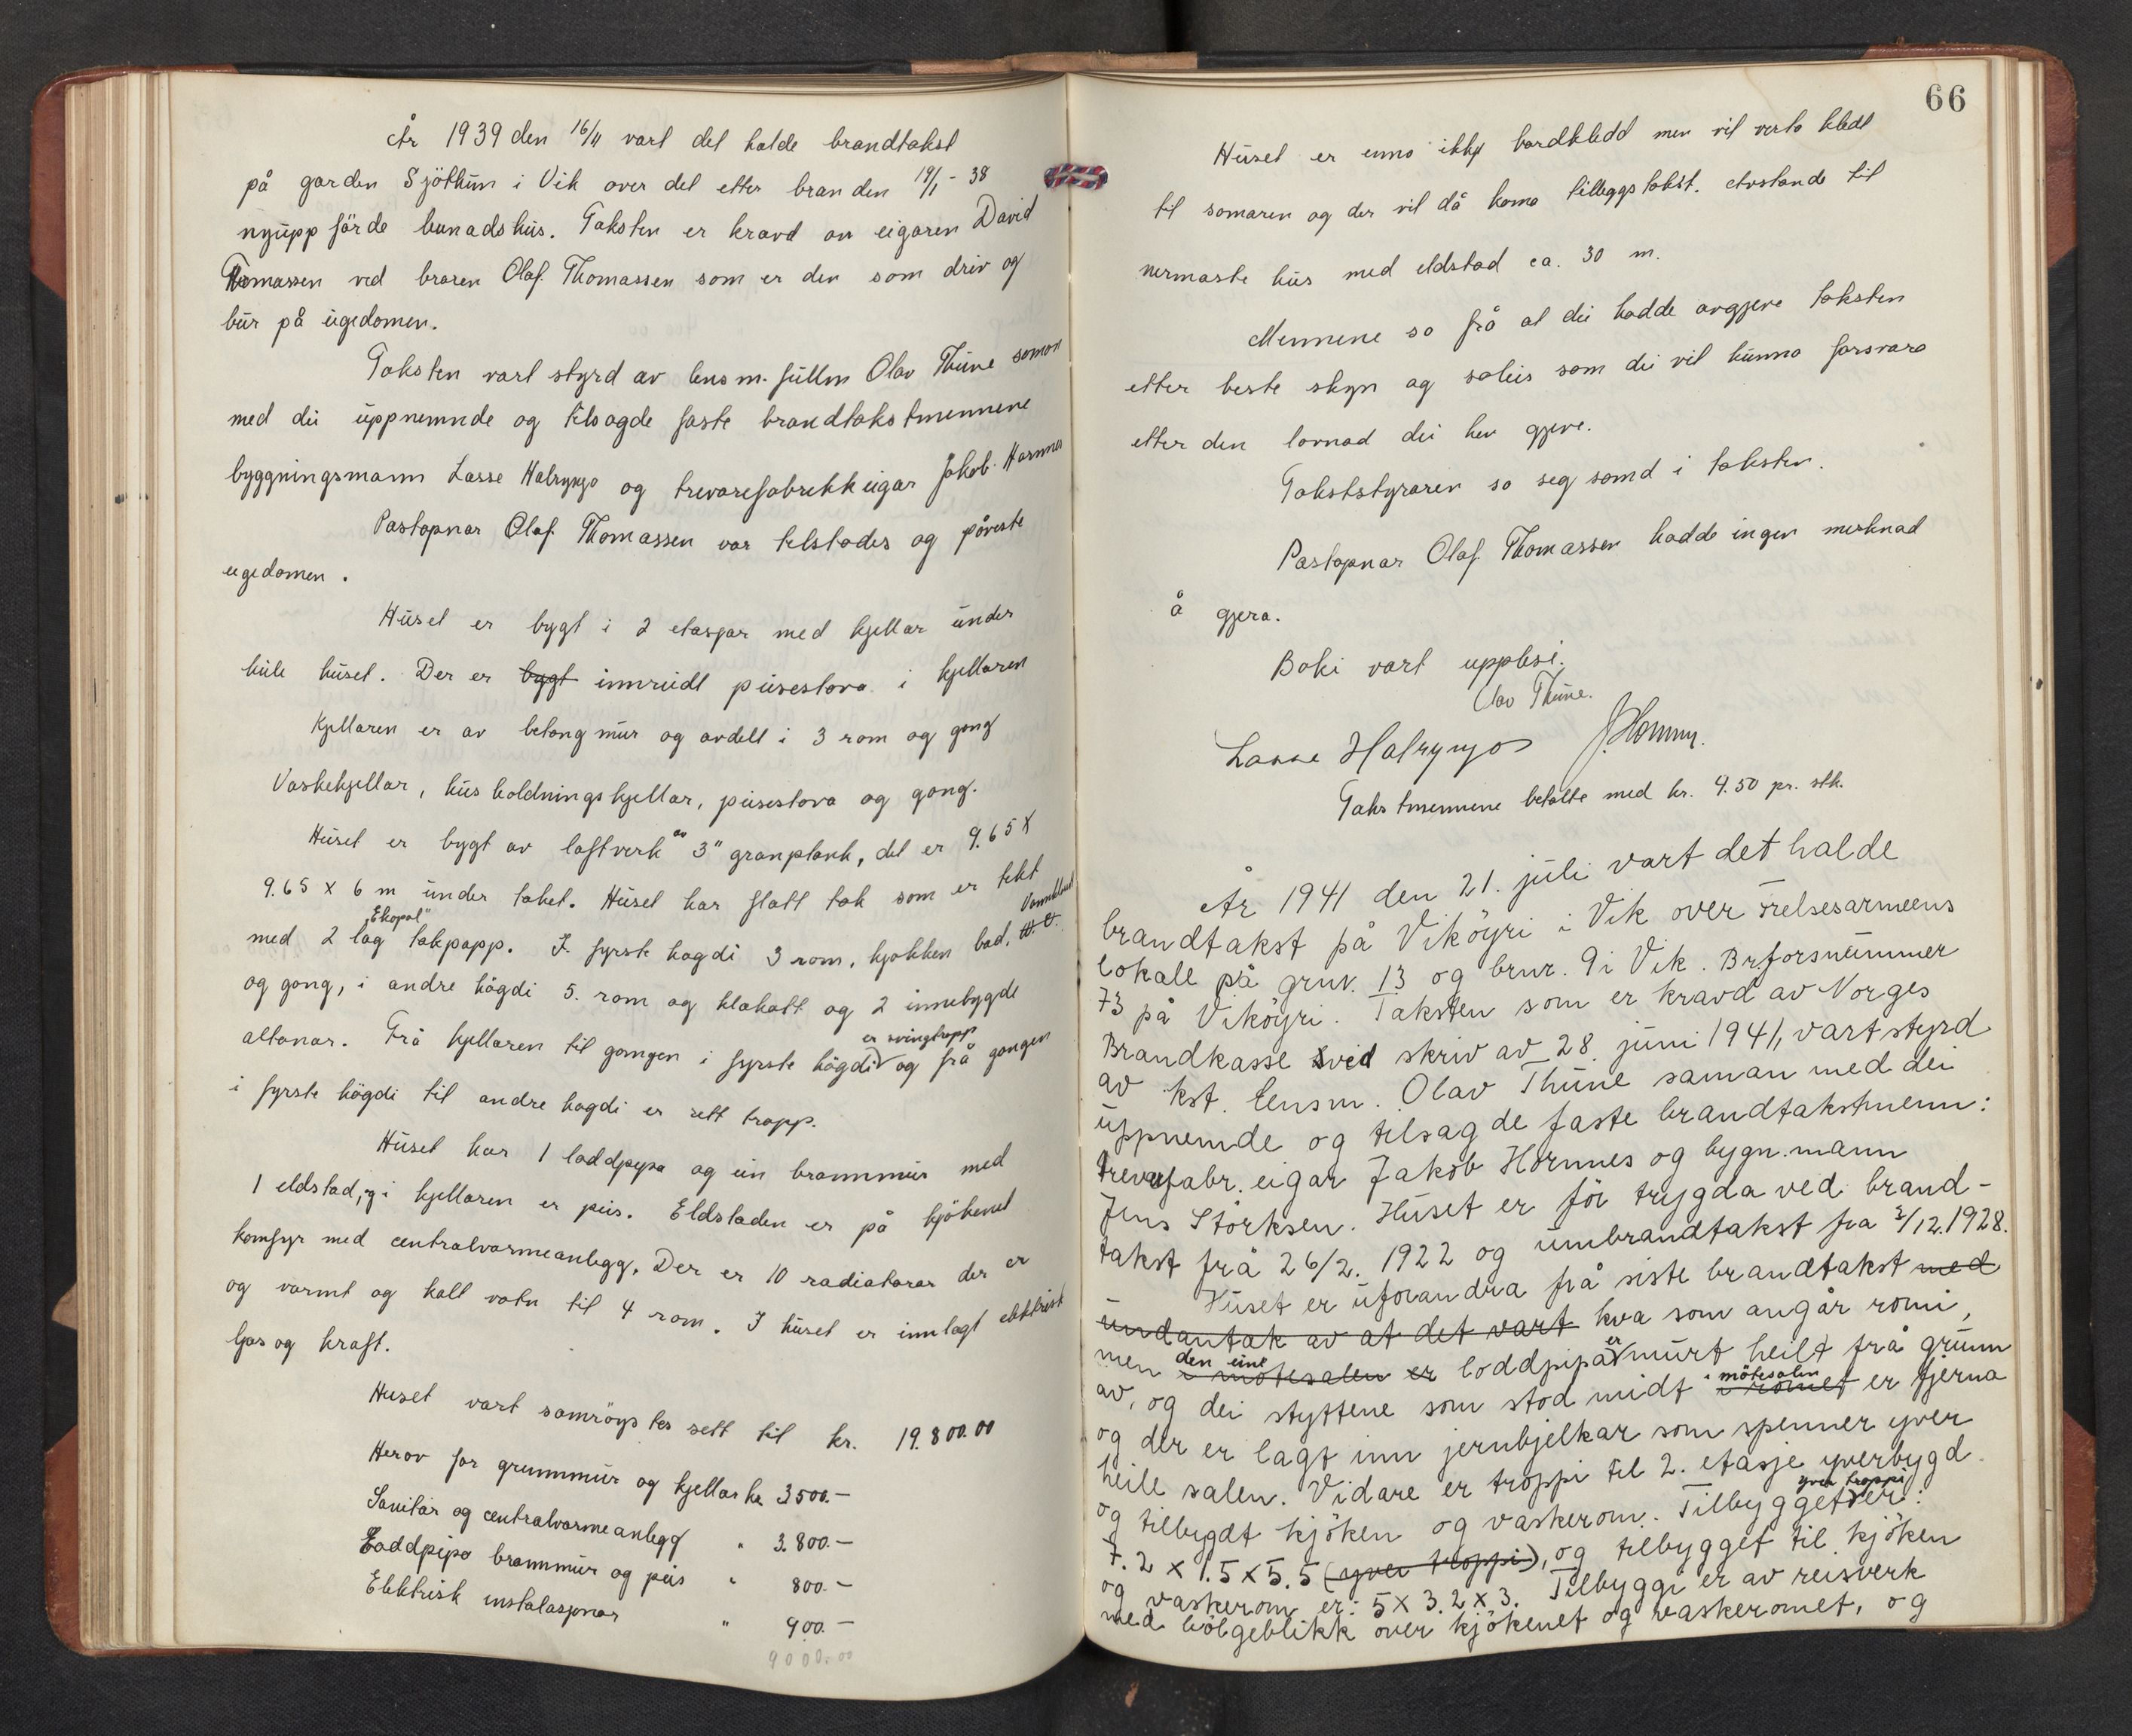 År 1939 den 16/11 vart det halde brandtakst
på garden Sjöthun i Vik over det etter branden 19/1-38
nyuppförde bunadshus. Taksten er kravd av eigaren David
Thomassen ved broren Olaf Thomassen som er den som driv og
bur på eigedomen.
Taksten vart styrd av lensm. fullm Olav Thune saman
med dei uppnemnde og tilsagde faste brandtakstmennene
byggningsmann Lasse Halrynjo og trevarefabrikkeigar Jakob Hormnes
Postopnar Olaf Thomassen var tilstades og påviste
eigedomen.
Huset er bygt i 2 etasjar med kjellar under
heile huset. Der er bygt innreidt peisestova i kjellaren
Kjellaren er av betongmur og avdelt i 3 rom og gong
Vaskekjellar, husholdningskjellar, peisestova og gong.
Huset er bygt av laftverk av 3" granplank, det er 9.65 X
9.65 x 6 m under taket. Huset har flatt tak som er tekt
med 2 lag "Ekopal" takpapp. I fyrste høgdi 3 rom, kjøkken bad, W.C. Vannklosett
og gong, i andre högdi 5. rom og klakott og 2 innebygde
altanar. Frå kjellaren til gongen i fyrste högdi er svingtropp og frå gongen
i fyrste högdi til andre høgdi er rett tropp.
Huset har 1 loddpipa og ein brannmur med
1 eldstad, og i kjellaren er peis. Eldstaden er på kjökenet
komfyr med centralvarmeanlegg. Der er 10 radiatorar der er
og varmt og kalt vatn til 4 rom. I huset er innlagt elektrisk
ljos og kraft.
Huset vart samröystes sett til kr. 19.800.00
Herav for grunnmur og kjellar kr 3500.-
Sanitær og centralvarmeanlegg " 3.800.-
Loddpipa brannmur og peis " 800.-
Elektrisk instalasjonar " 900.-
9000.00
66
Huset er enno ikkje bordkledd men vil verta kledt
til somaren og der vil då koma tilleggstakst. Avstande til
nermaste hus med eldstad ca. 30 m.
Mennene sa frå at dei hadde avgjeve taksten
etter beste skyn og soleis som dei vil kunna forsvara
etter den lovnad dei hev gjeve.
Takststyraren sa seg samd i taksten.
Postopnar Olaf Thomassen hadde ingen merknad
å gjera.
Boki vart upplesi.
Olav Thune.
Lasse Halrynjo J. Hormnes.
Takstmennene betalte med kr. 9.50 pr. stk.
År 1941 den 21. juli vart det halde
brandtakst på Viköyri i Vik over Frelsesarmeens
lokale på gnr. 13 og brnr. 9 i Vik. Br.forsnummer
73 på Viköyri. Taksten som er kravd av Norges
Brandkasse ved skriv av 28. juni 1941, vart styrd
av kst. lensm. Olav Thune saman med dei
uppnemde og tilsagde faste brandtakstmenn:
trevarefabr. eigar Jakob Hormnes og bygn.mann
Jens Storksen. Huset er för trygda ved brand-
takst frå 26/2. 1922 og umbrandtakst fra 3/12.1928.
Huset er uforandra frå siste brandtakst med
undantak av at det vart kva som angår romi,
men i mötesalen er den eine loddpipa er murt heilt frå grunn
av, og dei styttene som stod midt i romet i mötesalen er fjerna
og der er lagt inn jernbjelkar som spenner yver
heile salen. Vidare er troppi til 2. etasje yverbygd
og tilbygdt kjöken og vaskerom. Tilbygget yver troppi er:
7.2 x 1.5 x 5.5 (yver troppi), og tilbygget til kjöken
og vaskerom er: 5 x 3.2 x 3. Tilbyggi er av reisverk
med bölgeblikk over kjökenet og vaskeromet, og